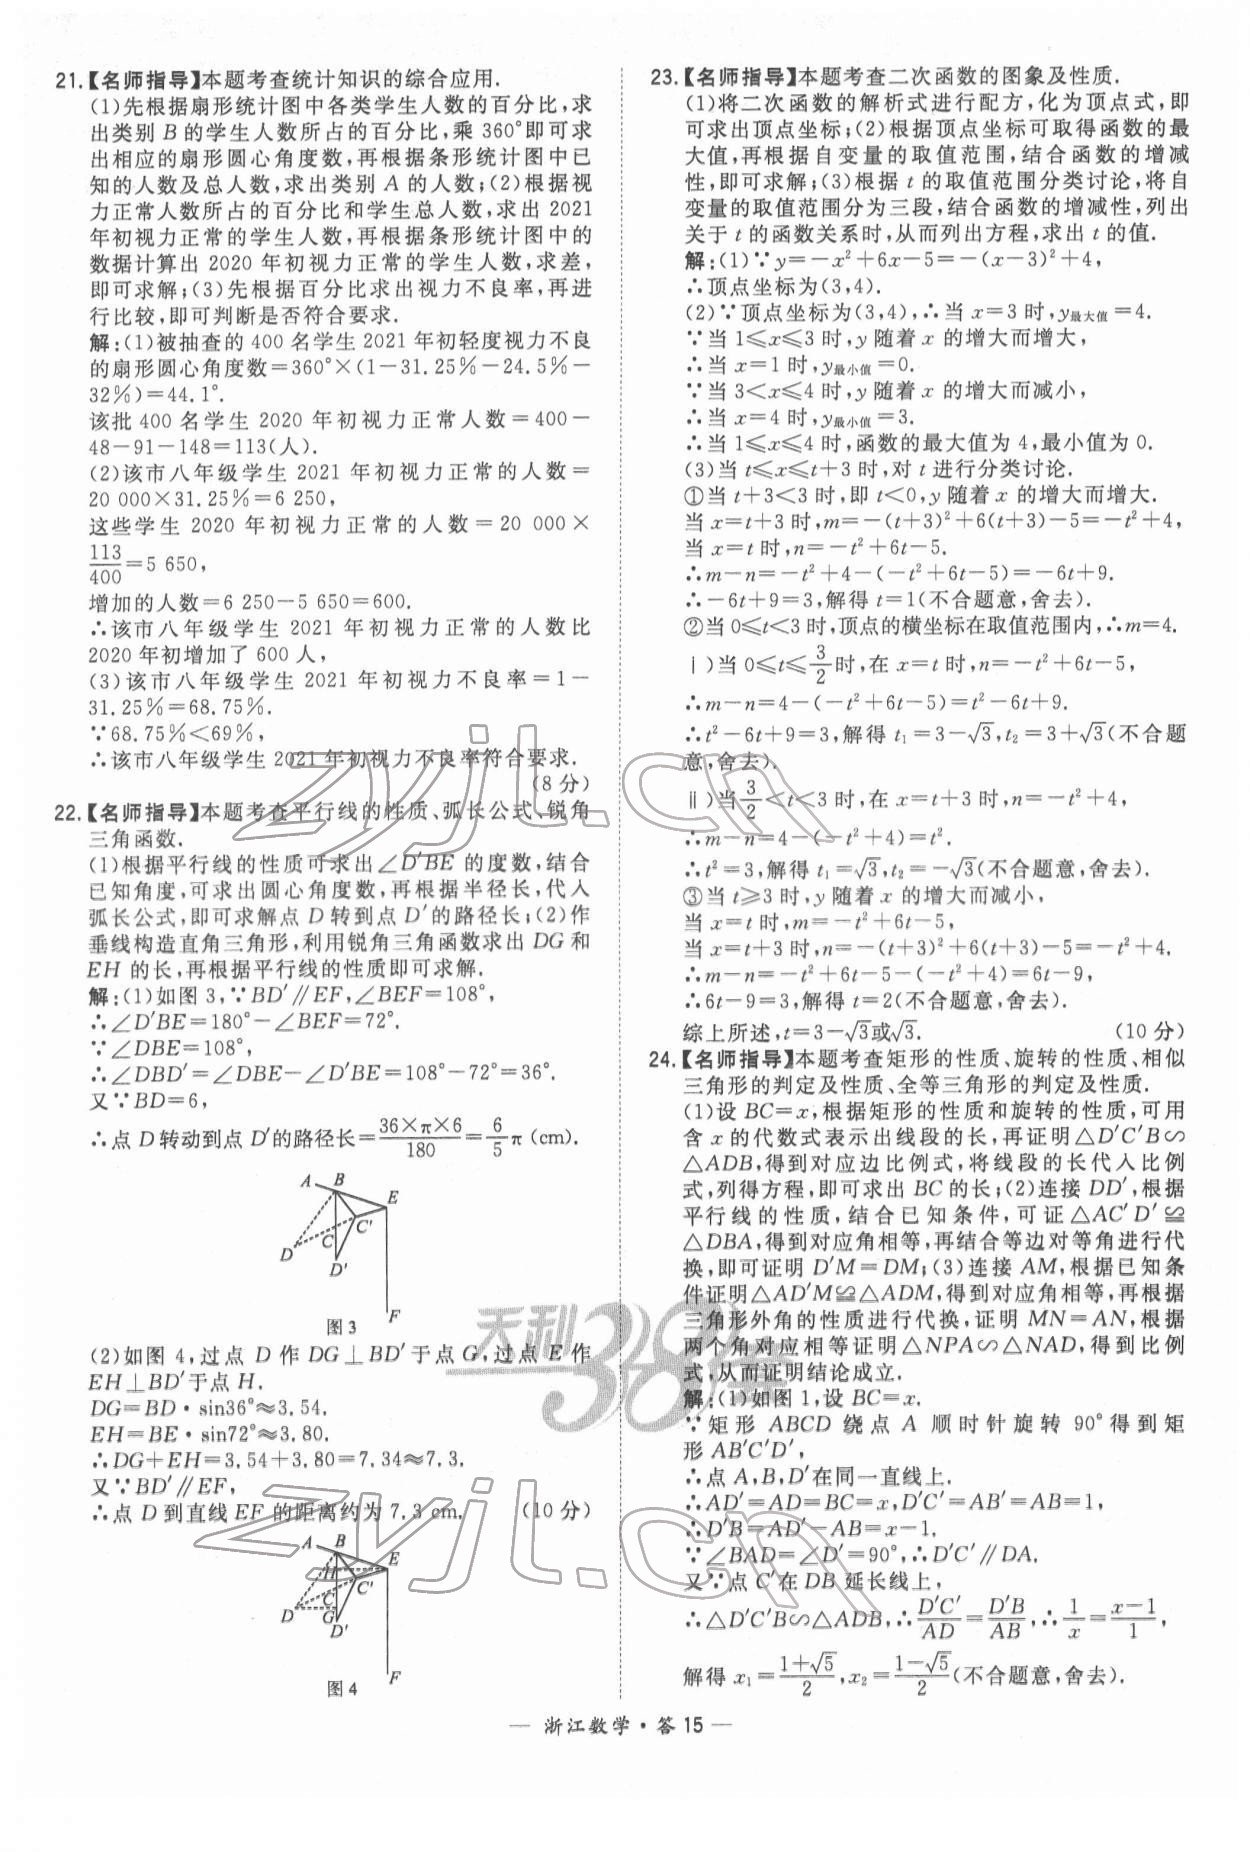 21.【名师指导】本题考查统计知识的综合应用.
(1)先根据扇形统计图中各类学生人数的百分比,求
出类别 B 的学生人数所占的百分比,乘 360°即可求
出相应的扇形圆心角度数,再根据条形统计图中已
知的人数及总人数,求出类别 A 的人数;(2)根据视
力正常人数所占的百分比和学生总人数,求出 2021
年初视力正常的学生人数,再根据条形统计图中的
数据计算出 2020 年初视力正常的学生人数,求差,
即可求解;(3)先根据百分比求出视力不良率,再进
行比较,即可判断是否符合要求.
解:(1)被抽查的 400 名学生 2021 年初轻度视力不良
的扇形圆心角度数=360°×(1-31.25%-24.5%-
32%)=44.1°.
该批 400 名学生 2020 年初视力正常人数=400-
48-91-148=113(人).
(2)该市八年级学生 2021 年初视力正常的人数=
20 000×31.25%=6 250,
这些学生 2020 年初视力正常的人数=20 000×
113/400=5 650,
增加的人数=6 250-5 650=600.
∴该市八年级学生 2021 年初视力正常的人数比
2020 年初增加了 600 人,
(3)该市八年级学生 2021 年初视力不良率=1-
31.25%=68.75%.
∵68.75%<69%,
∴该市八年级学生 2021 年初视力不良率符合要求.
(8 分)
22.【名师指导】本题考查平行线的性质、弧长公式、锐角
三角函数.
(1)根据平行线的性质可求出∠D′BE 的度数,结合
已知角度,可求出圆心角度数,再根据半径长,代入
弧长公式,即可求解点 D 转到点 D′的路径长;(2)作
垂线构造直角三角形,利用锐角三角函数求出 DG 和
EH 的长,再根据平行线的性质即可求解.
解:(1)如图 3,∵BD′∥EF,∠BEF=108°,
∴∠D′BE=180°-∠BEF=72°.
∵∠DBE=108°,
∴∠DBD′=∠DBE-∠D′BE=108°-72°=36°.
又∵BD=6,
∴点 D 转动到点 D′的路径长=36×π×6/180=6/5π(cm).
A B E
C C′
D D′
F
图 3
(2)如图 4,过点 D 作 DG⊥BD′于点 G,过点 E 作
EH⊥BD′于点 H.
DG=BD·sin36°≈3.54,
EH=BE·sin72°≈3.80.
∴DG+EH=3.54+3.80=7.34≈7.3.
又∵BD′∥EF,
∴点 D 到直线 EF 的距离约为 7.3 cm. (10 分)
A B E
H C′
C
D G
D′
F
图 4
23.【名师指导】本题考查二次函数的图象及性质.
(1)将二次函数的解析式进行配方,化为顶点式,即
可求出顶点坐标;(2)根据顶点坐标可取得函数的最
大值,再根据自变量的取值范围,结合函数的增减
性,即可求解;(3)根据 t 的取值范围分类讨论,将自
变量的取值范围分为三段,结合函数的增减性,列出
关于 t 的函数关系时,从而列出方程,求出 t 的值.
解:(1)∵y=-x²+6x-5=-(x-3)²+4,
∴顶点坐标为(3,4).
(2)∵顶点坐标为(3,4),∴当 x=3 时,y最大值=4.
∵当 1≤x≤3 时,y 随着 x 的增大而增大,
∴当 x=1 时,y最小值=0.
∵当 3<x≤4 时,y 随着 x 的增大而减小,
∴当 x=4 时,y最小值=3.
∴当 1≤x≤4 时,函数的最大值为 4,最小值为 0.
(3)当 t≤x≤t+3 时,对 t 进行分类讨论.
①当 t+3<3 时,即 t<0,y 随着 x 的增大而增大.
当 x=t+3 时,m=-(t+3)²+6(t+3)-5=-t²+4,
当 x=t 时,n=-t²+6t-5.
∴m-n=-t²+4-(-t²+6t-5)=-6t+9.
∴-6t+9=3,解得 t=1(不合题意,舍去).
②当 0≤t<3 时,顶点的横坐标在取值范围内,∴m=4.
ⅰ)当 0≤t≤3/2时,在 x=t 时,n=-t²+6t-5,
∴m-n=4-(-t²+6t-5)=t²-6t+9.
∴t²-6t+9=3,解得 t₁=3-√3,t₂=3+√3(不合题
意,舍去).
ⅱ)当3/2<t<3 时,在 x=t+3 时,n=-t²+4,
∴m-n=4-(-t²+4)=t².
∴t²=3,解得 t₁=√3,t₂=-√3(不合题意,舍去).
③当 t≥3 时,y 随着 x 的增大而减小,
当 x=t 时,m=-t²+6t-5,
当 x=t+3 时,n=-(t+3)²+6(t+3)-5=-t²+4.
∴m-n=-t²+6t-5-(-t²+4)=6t-9,
∴6t-9=3,解得 t=2(不合题意,舍去).
综上所述,t=3-√3或√3. (10 分)
24.【名师指导】本题考查矩形的性质、旋转的性质、相似
三角形的判定及性质、全等三角形的判定及性质.
(1)设 BC=x,根据矩形的性质和旋转的性质,可用
含 x 的代数式表示出线段的长,再证明△D′C′B∽
△ADB,得到对应边比例式,将线段的长代入比例
式,列得方程,即可求出 BC 的长;(2)连接 DD′,根据
平行线的性质,结合已知条件,可证△AC′D′≌
△DBA,得到对应角相等,再结合等边对等角进行代
换,即可证明 D′M=DM;(3)连接 AM,根据已知条
件证明△AD′M≌△ADM,得到对应角相等,再根据
三角形外角的性质进行代换,证明 MN=AN,根据
两个角对应相等证明△NPA∽△NAD,得到比例
式,从而证明结论成立.
解:(1)如图 1,设 BC=x.
∵矩形 ABCD 绕点 A 顺时针旋转 90°得到矩
形 AB′C′D′,
∴点 A,B,D′在同一直线上.
∴AD′=AD=BC=x,D′C′=AB′=AB=1,
∴D′B=AD′-AB=x-1.
∵∠BAD=∠D′=90°,∴D′C′∥DA.
又∵点 C′在 DB 延长线上,
∴△D′C′B∽△ADB,∴D′C′/AD=D′B/AB,∴1/x=x-1/1,
解得 x₁=1+√5/2,x₂=1-√5/2(不合题意,舍去).
— 浙江数学·答 15 —
天利38套
zyjl.cn
zyjl.cn